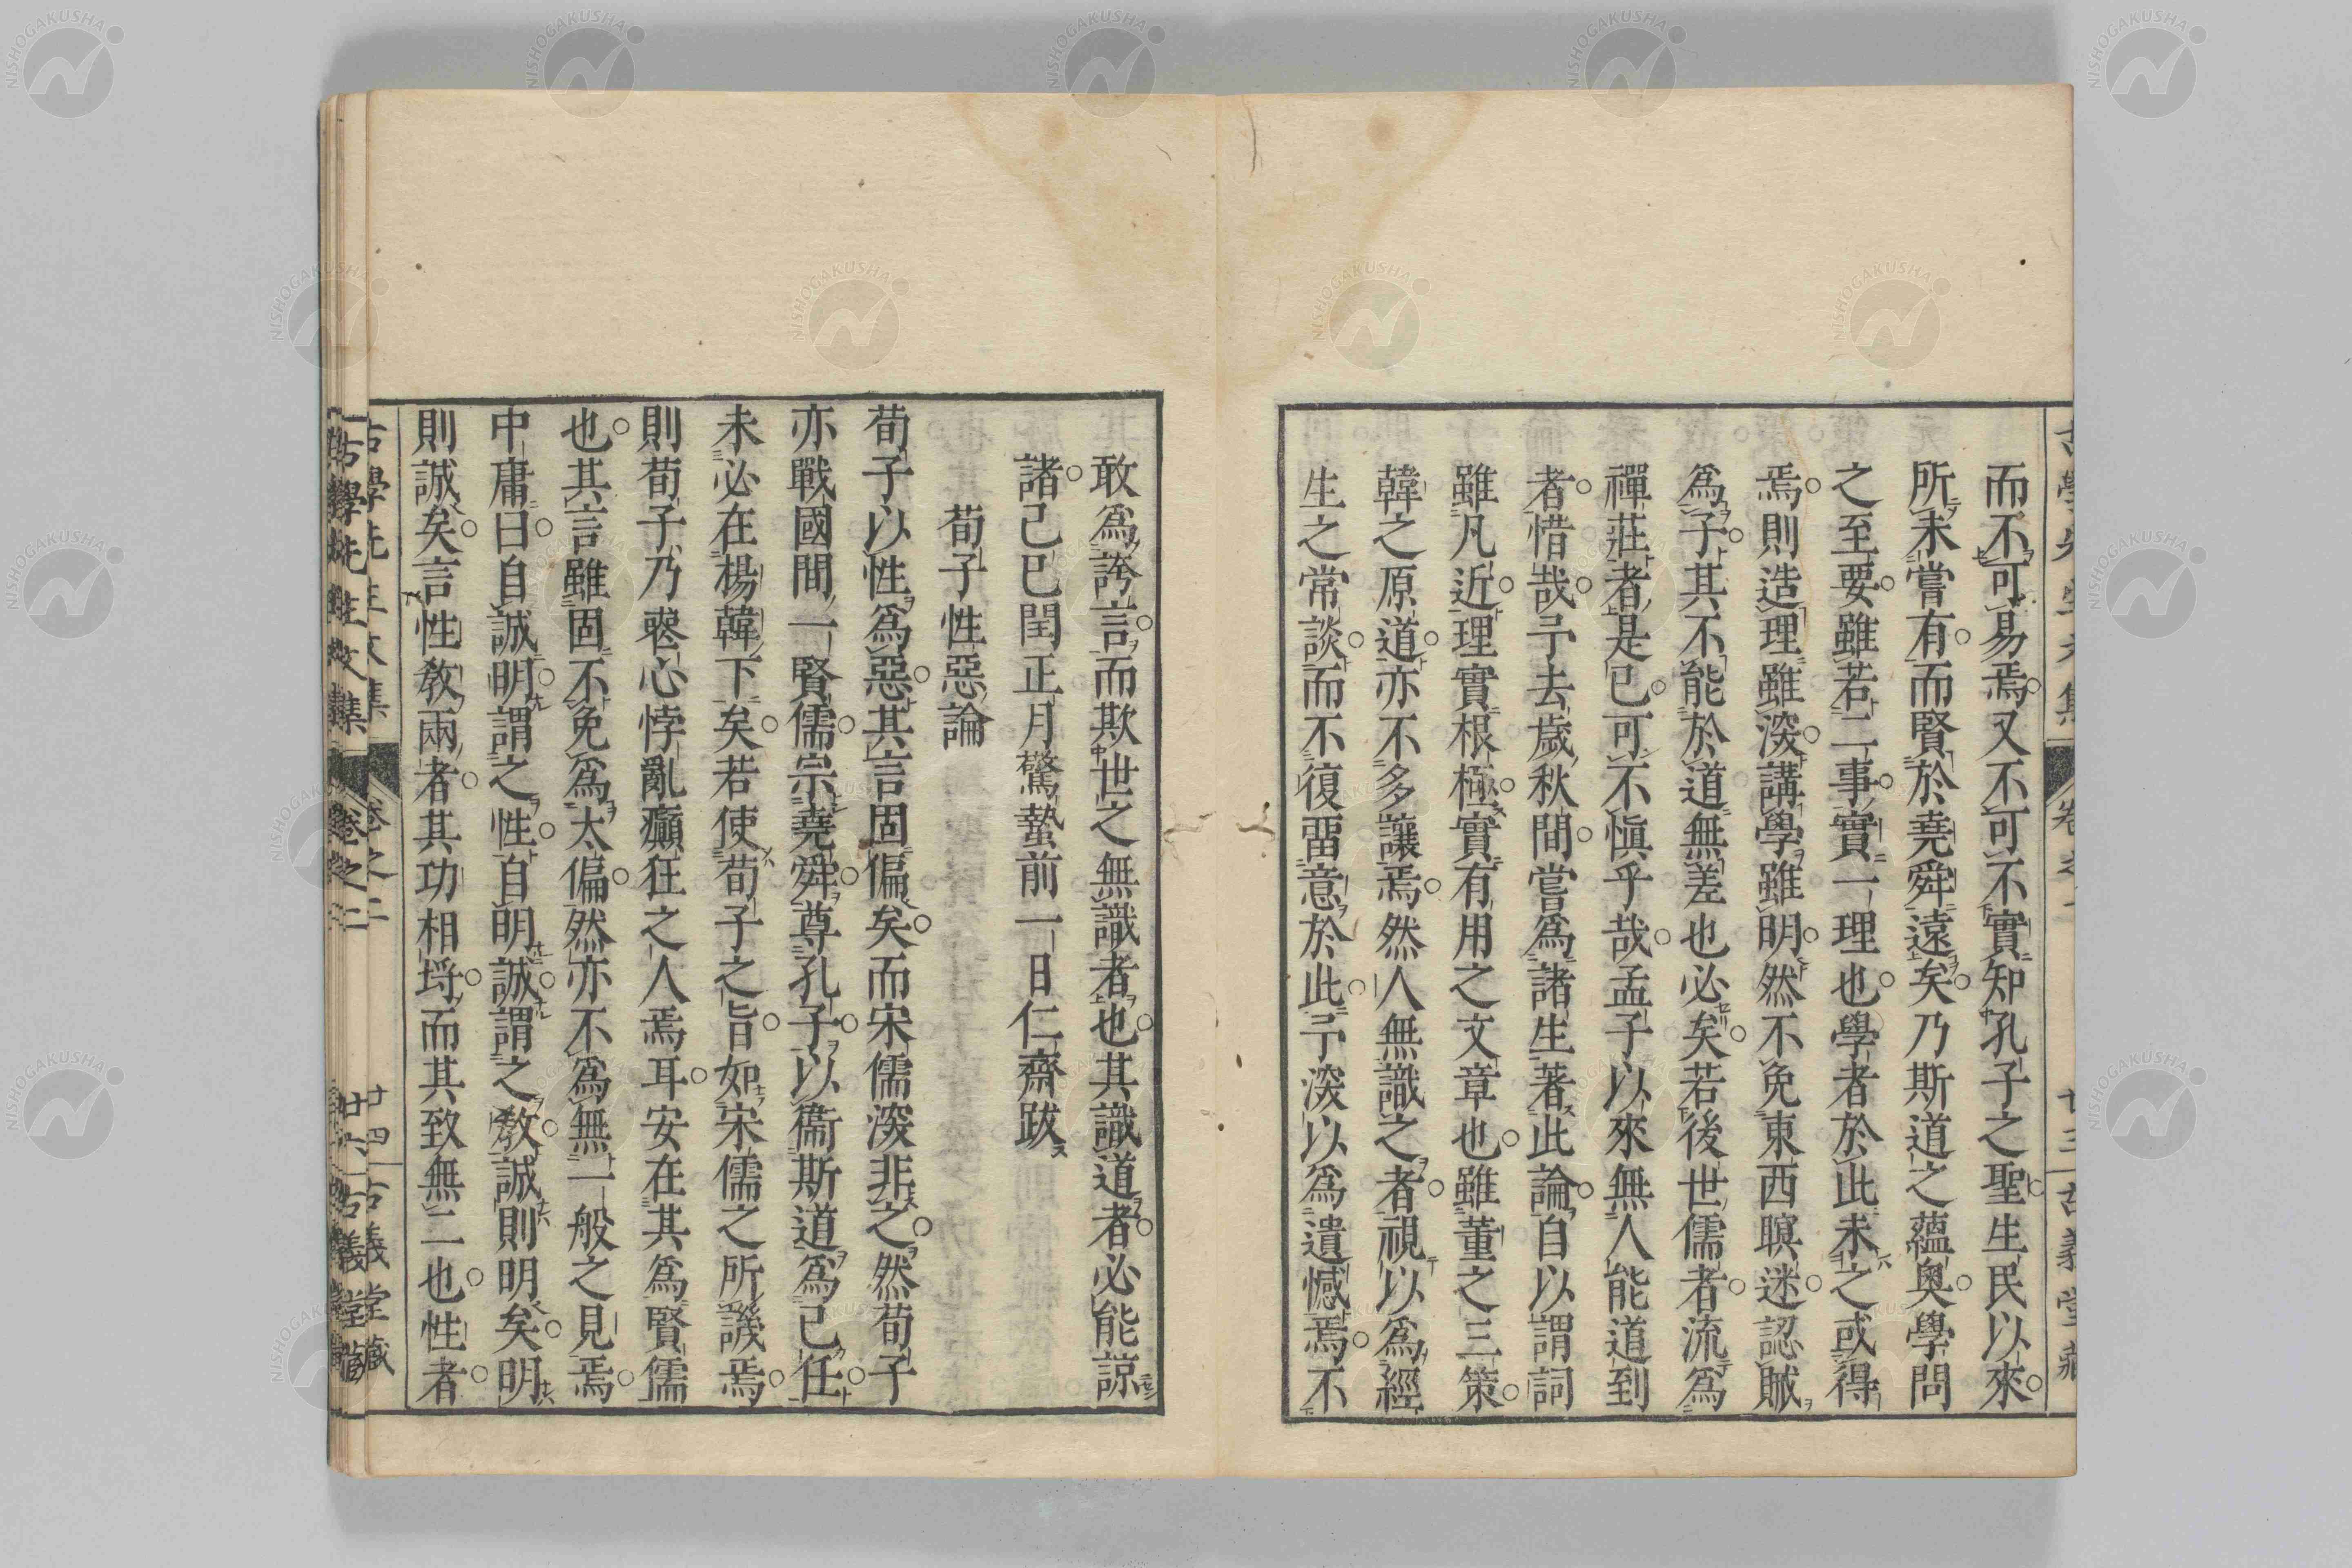 而不可易焉又不可不實知孔子之聖生民以來
所未嘗有而賢於堯舜遠矣乃斯道之蘊奧學問
之至要雖若二事實一理也學者於此未之或得
焉則造理雖深講學雖明然不免東西瞑迷認賊
爲子其不能於道無差也必矣若後世儒者流爲
禪莊者是已可不愼乎哉孟子以來無人能道到
者惜哉予去歲秋間嘗爲諸生著此論自以謂詞
雖凡近理實根極實有用之文章也雖董之三策
韓之原道亦不多讓焉然人無識之者視以爲經
生之常談而不復畱意於此予深以爲遺憾焉不
敢爲誇言而欺世之無識者也其識道者必能諒
諸己巳閏正月驚蟄前一日仁齋跋
荀子性惡論
荀子以性爲惡其言固偏矣而宋儒深非之然荀子
亦戰國間一賢儒宗堯舜尊孔子以衞斯道爲己任
未必在楊韓下矣若使荀子之旨如宋儒之所譏焉
則荀子乃喪心悖亂癲狂之人焉耳安在其爲賢儒
也其言雖固不免爲太偏然亦不爲無一般之見焉
中庸曰自誠明謂之性自明誠謂之敎誠則明矣明
則誠矣言性敎兩者其功相埒而其致無二也性者
古學先生文集 卷之二 廿四 古義堂藏